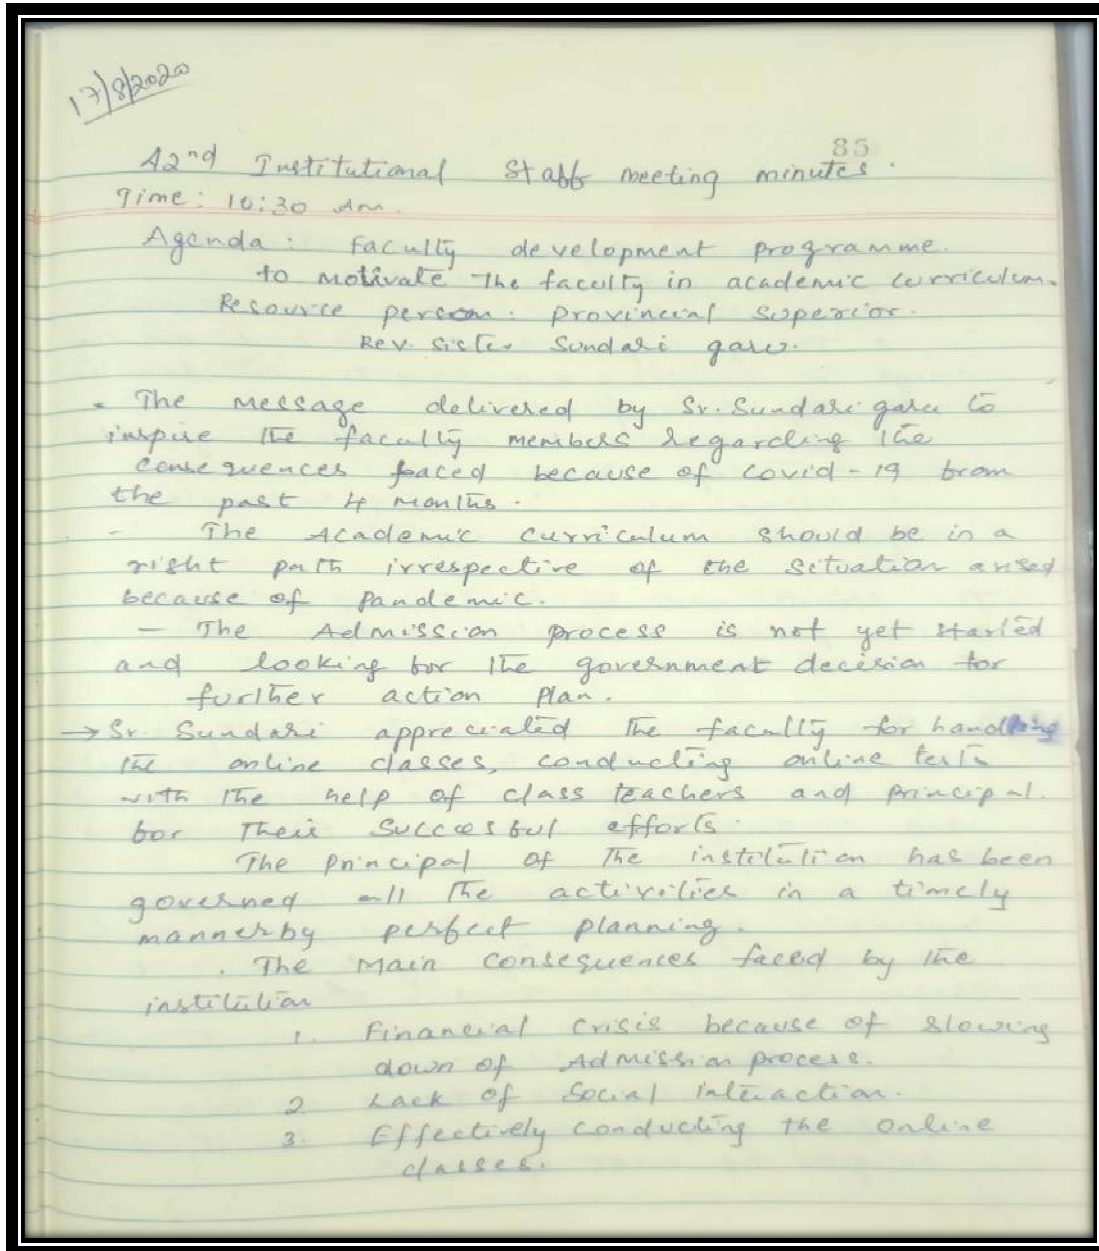 17/8/2020
85
42nd Institutional Staff meeting minutes.
Time: 10:30 Am.
Agenda: Faculty development programme.
to motivate the faculty in academic curriculum.
Resource person: Provincial Superior.
Rev. Sister Sundari garu.
- The message delivered by Sr. Sundari garu to
inspire the faculty members regarding the
consequences faced because of covid-19 from
the past 4 months.
- The Academic curriculum should be in a
right path irrespective of the situation arised
because of Pandemic.
- The Admission process is not yet started
and looking for the government decision for
further action plan.
→ Sr. Sundari appreciated the faculty for handling
the online classes, conducting online tests
with the help of class teachers and principal.
for their succesful efforts.
The principal of the institution has been
governed all the activities in a timely
manner by perfect planning.
. The Main consequences faced by the
institution
1. Financial crisis because of slowing
down of Admission process.
2 Lack of Social interaction.
3. Effectively conducting the online
classes.